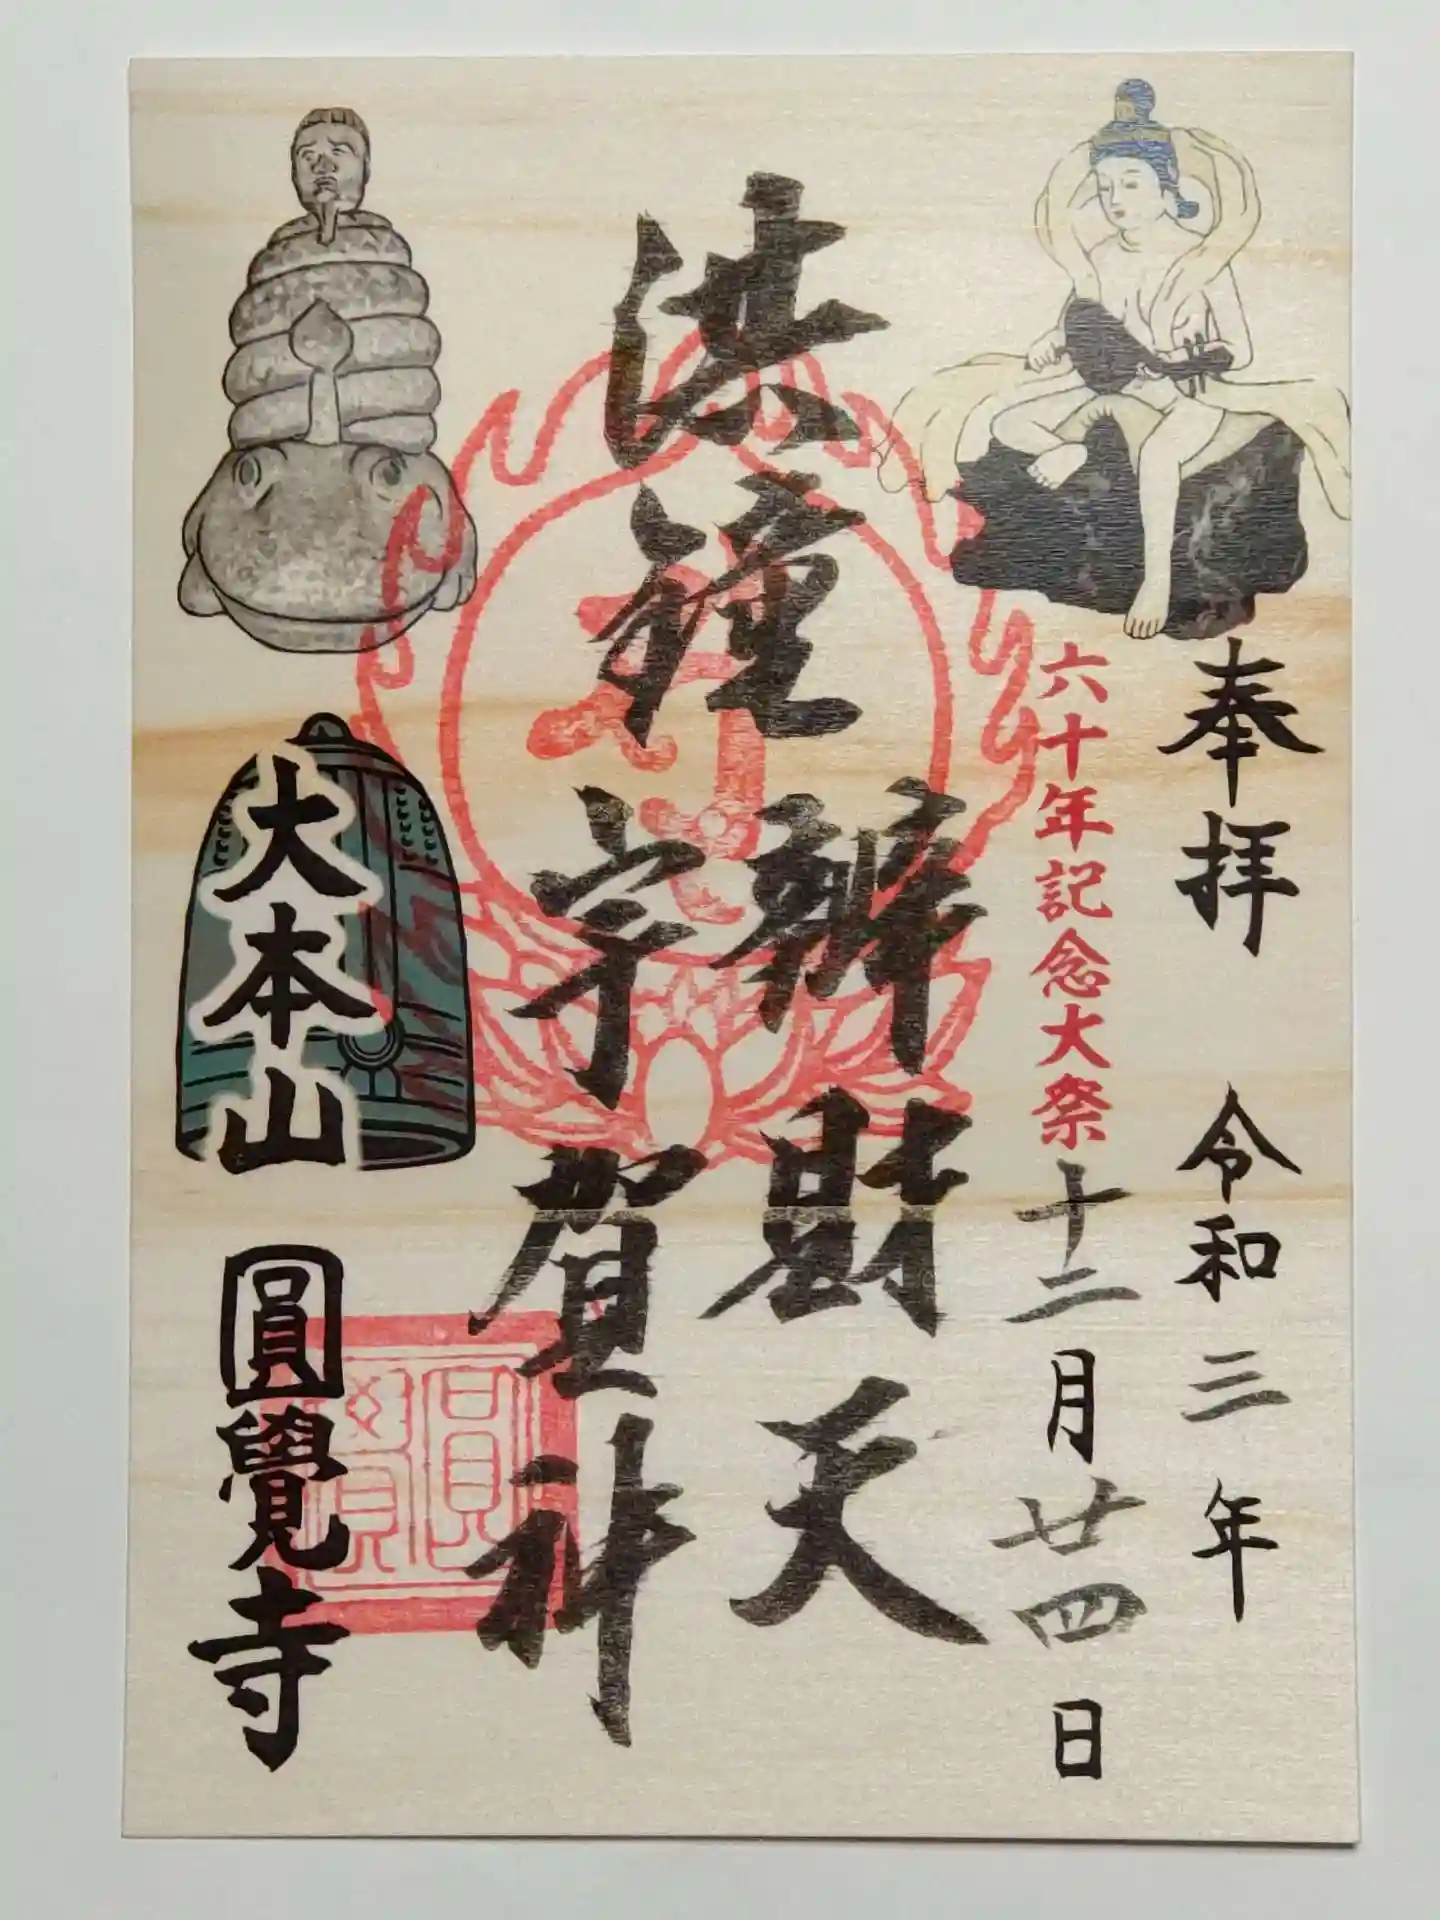 奉拝 令和三年
六十年記念大祭 十二月廿四日
洪鐘
辨財天
宇賀神
大本山
圓覺寺
圓覺